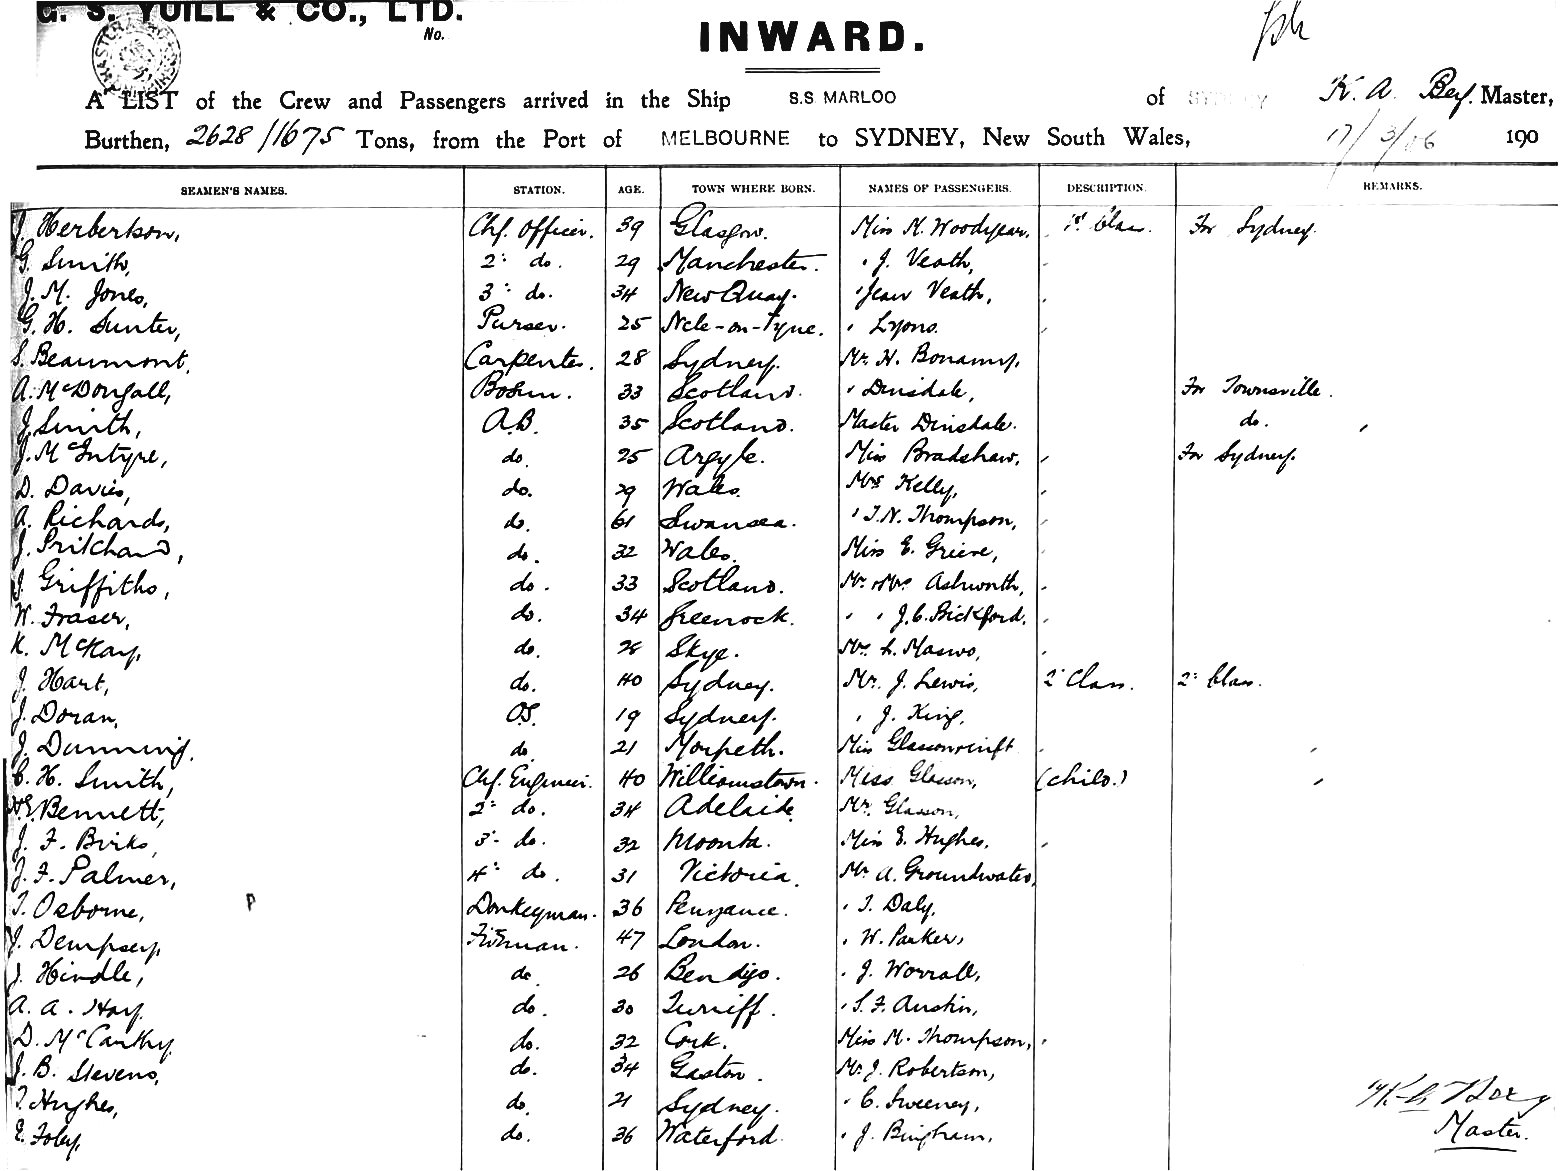 G. S. YUILL & CO., LTD.
No.
INWARD.
A LIST of the Crew and Passengers arrived in the Ship S.S MARLOO of SYDNEY K. A. Master,
Burthen, 2628/1675 Tons, from the Port of MELBOURNE to SYDNEY, New South Wales, 17/3/06 190
SEAMEN'S NAMES. STATION. AGE. TOWN WHERE BORN. NAMES OF PASSENGERS. DESCRIPTION. REMARKS.
J. Herbertson, Chf. Officer. 39 Glasgow. Miss N. Woodyear, 1st Class. For Sydney.
G. Smith, 2" do. 29 Manchester. " J. Veath,
J. M. Jones, 3" do. 34 New Quay. " Jean Veath,
G. H. Sunter, Purser. 25 Ncle-on-Tyne. " Lyons.
S. Beaumont, Carpenter. 28 Sydney. Mr. H. Bonamy,
A. McDongall, Bosun. 33 Scotland. " Dinsdale, For Townsville.
J. Smith, A.B. 35 Scotland. Master Dinsdale. do.
J. McIntyre, do. 25 Argyle. Miss Bradshaw, For Sydney.
D. Davies, do. 29 Wales. Mrs Kelly,
A. Richards, do. 61 Swansea. " T. N. Thompson,
J. Pritchard, do. 32 Wales. Miss E. Grieve,
J. Griffiths, do. 33 Scotland. Mr. & Mrs. Ashworth,
W. Fraser, do. 34 Greenock. " " J. C. Bickford.
K. McKay, do. 28 Skye. L. Maswo,
J. Hart, do. 40 Sydney. Mr. J. Lewis, 2" Class. 2" Class.
J. Doran, O.S. 19 Sydney. " J. King,
J. Dunning. do. 21 Morpeth. Miss
C. H. Smith, Chf. Engineer. 40 Williamstown. Miss Glasson, (child.)
Bennett, 2" do. 34 Adelaide. Mr. Glasson,
J. F. Birks, 3" do. 32 Moonta. Miss E. Hughes.
J. F. Palmer, 4" do. 31 Victoria. Mr A. Groundwater,
T. Osborne, Donkeyman. 36 Penzance. " T. Daly,
J. Dempsey, Fireman. 47 London. " W. Parker,
J. Hindle, do 26 Bendigo. " J. Worrall,
A. A. Hay. do. 30 Turriff. " S. F. Austin,
D. McCarthy. do. 32 Cork. Miss M. Thompson,
J. B. Stevens, do. 34 Gaston. Mr J. Robertson,
T. Hughes, do. 21 Sydney. " C. Sweeney,
E. Foley, do. 36 Waterford. " J. Bingham,
Master.